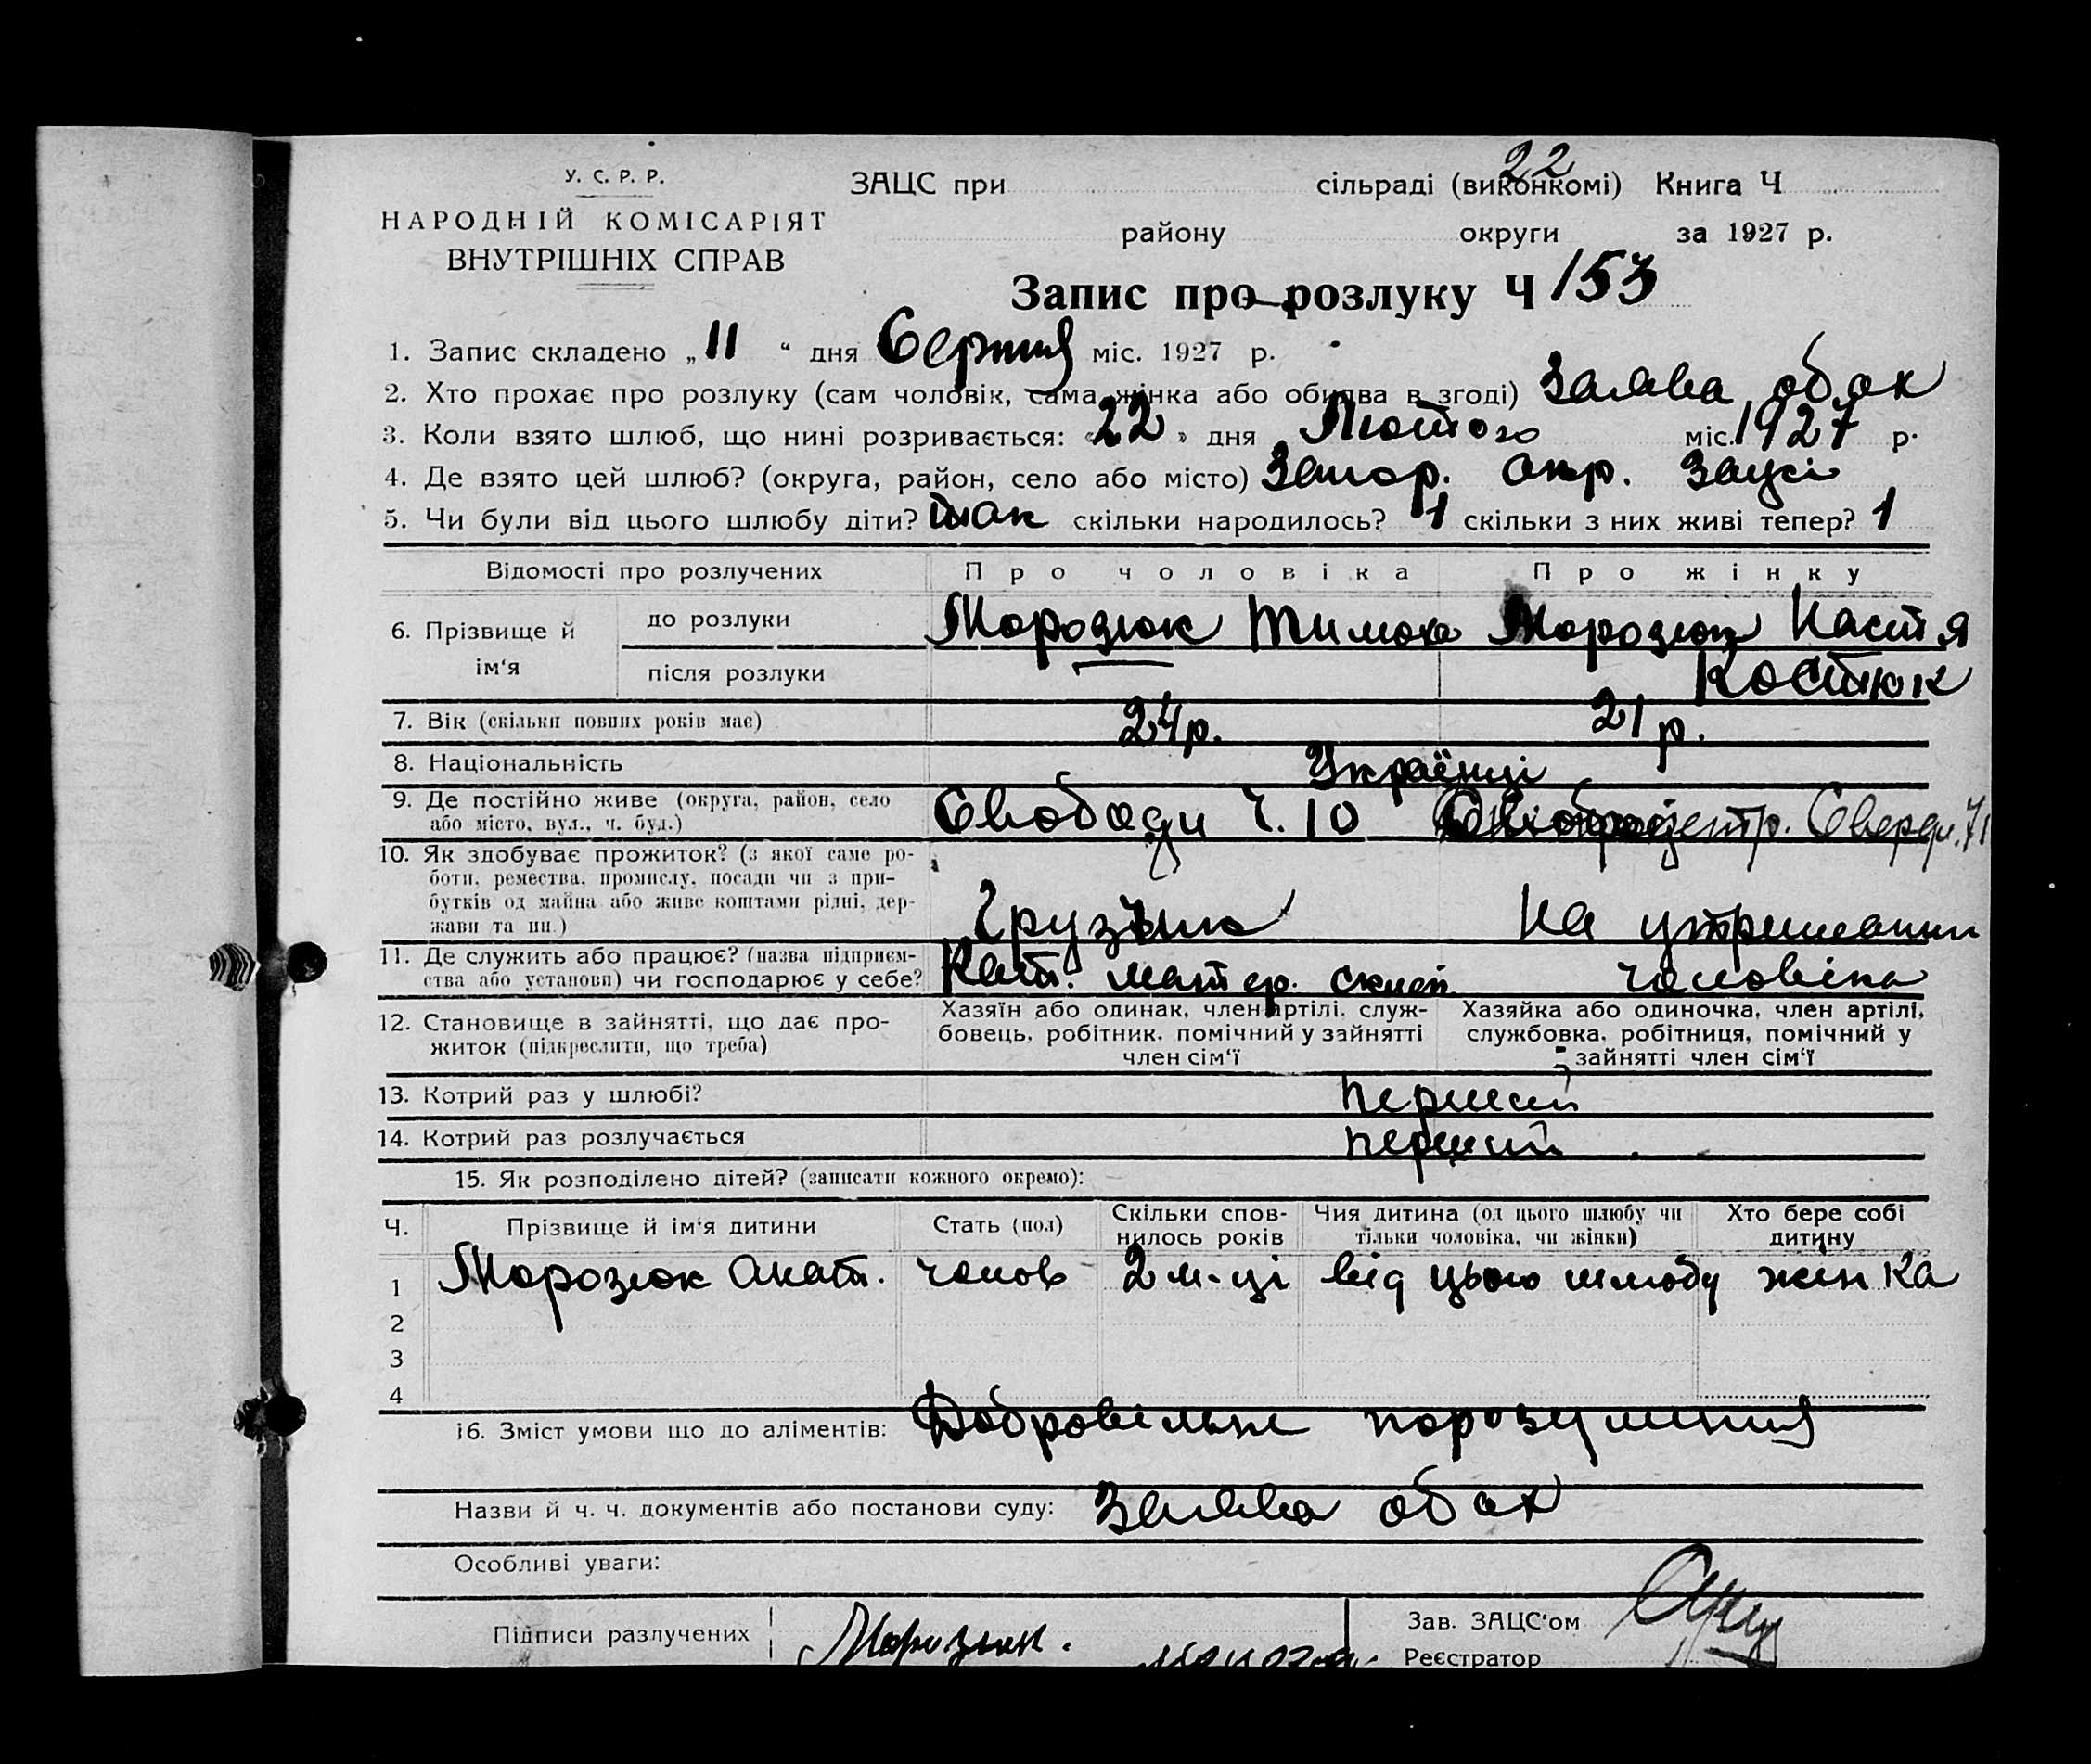 22
У. С. Р. Р.
НАРОДНІЙ КОМІСАРІЯТ
ВНУТРІШНІХ СПРАВ
ЗАЦС при сільраді (виконкомі) Книга Ч
району округи за 1927 р.
Запис про розлуку Ч 153
1. Запис складено „11“ дня Серпня міс. 1927 р.
2. Хто прохає про розлуку (сам чоловік, сама жінка або обидва в згоді) Заява обох
3. Коли взято шлюб, що нині розривається: «22» дня Лютого міс. 1927 р.
4. Де взято цей шлюб? (округа, район, село або місто) Запор. окр. Зацсі
5. Чи були від цього шлюбу діти? так скільки народилось? 1 скільки з них живі тепер? 1
Відомості про розлучених Про чоловіка Про жінку
6. Прізвище й ім'я до розлуки Морозюк Тимох Морозюк Настя
після розлуки Костюк
7. Вік (скільки повних років має) 24 р. 21 р.
8. Національність Українці
9. Де постійно живе (округа, район, село Свободи ч. 10 Свердл. 71
або місто, вул., ч. буд.)
10. Як здобуває прожиток? (з якої саме ро-
боти, ремества, промислу, посади чи з при-
бутків од майна або живе коштами рідні, дер-
жави та ин.) На утриманни
11. Де служить або працює? (назва підприєм- чоловіка
ства або установи) чи господарює у себе? матер. склад
12. Становище в зайнятті, що дає про-
житок (підкреслити, що треба)
Хазяїн або одинак, член артілі, служ-
бовець, робітник, помічний у зайнятті
член сім'ї
Хазяйка або одиночка, член артілі,
службовка, робітниця, помічний у
зайнятті член сім'ї
13. Котрий раз у шлюбі? перший
14. Котрий раз розлучається перший
15. Як розподілено дітей? (записати кожного окремо):
Ч. Прізвище й ім'я дитини Стать (пол) Скільки спов-
нилось років Чия дитина (од цього шлюбу чи
тільки чоловіка, чи жінки) Хто бере собі
дитину
1 Морозюк Анат. чолов 2 м-ці від цього шлюбу жінка
2
3
4
16. Зміст умови що до аліментів: Добровільне порозуміння
Назви й ч. ч. документів або постанови суду: Заява обох
Особливі уваги:
Підписи разлучених Морозюк. Зав. ЗАЦС'ом
Реєстратор